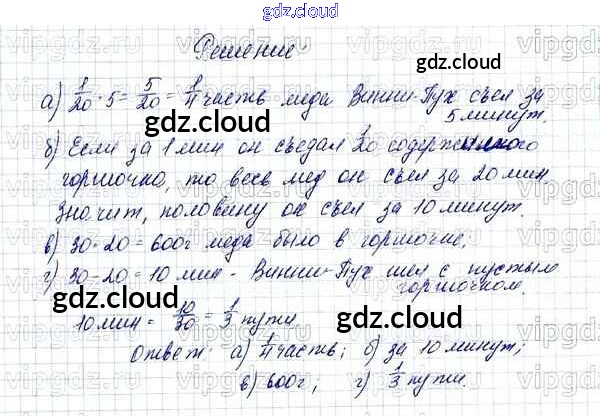 gdz.cloud
Решение
а) 1/20 · 5 = 5/20 = 1/4 часть меда Винни-Пух съел за
5 минут.
б) Если за 1 мин он съедал 1/20 содержимого
горшочка, то весь мед он съел за 20 мин
Значит, половину он съел за 10 минут.
в) 30·20 = 600г меда было в горшочке;
г) 30-20 = 10 мин - Винни-Пух шел с пустым
горшочком.
10 мин = 10/30 = 1/3 пути.
Ответ: а) 1/4 часть; б) за 10 минут;
в) 600г; г) 1/3 пути.
gdz.cloud
gdz.cloud
gdz.cloud
gdz.cloud
gdz.cloud